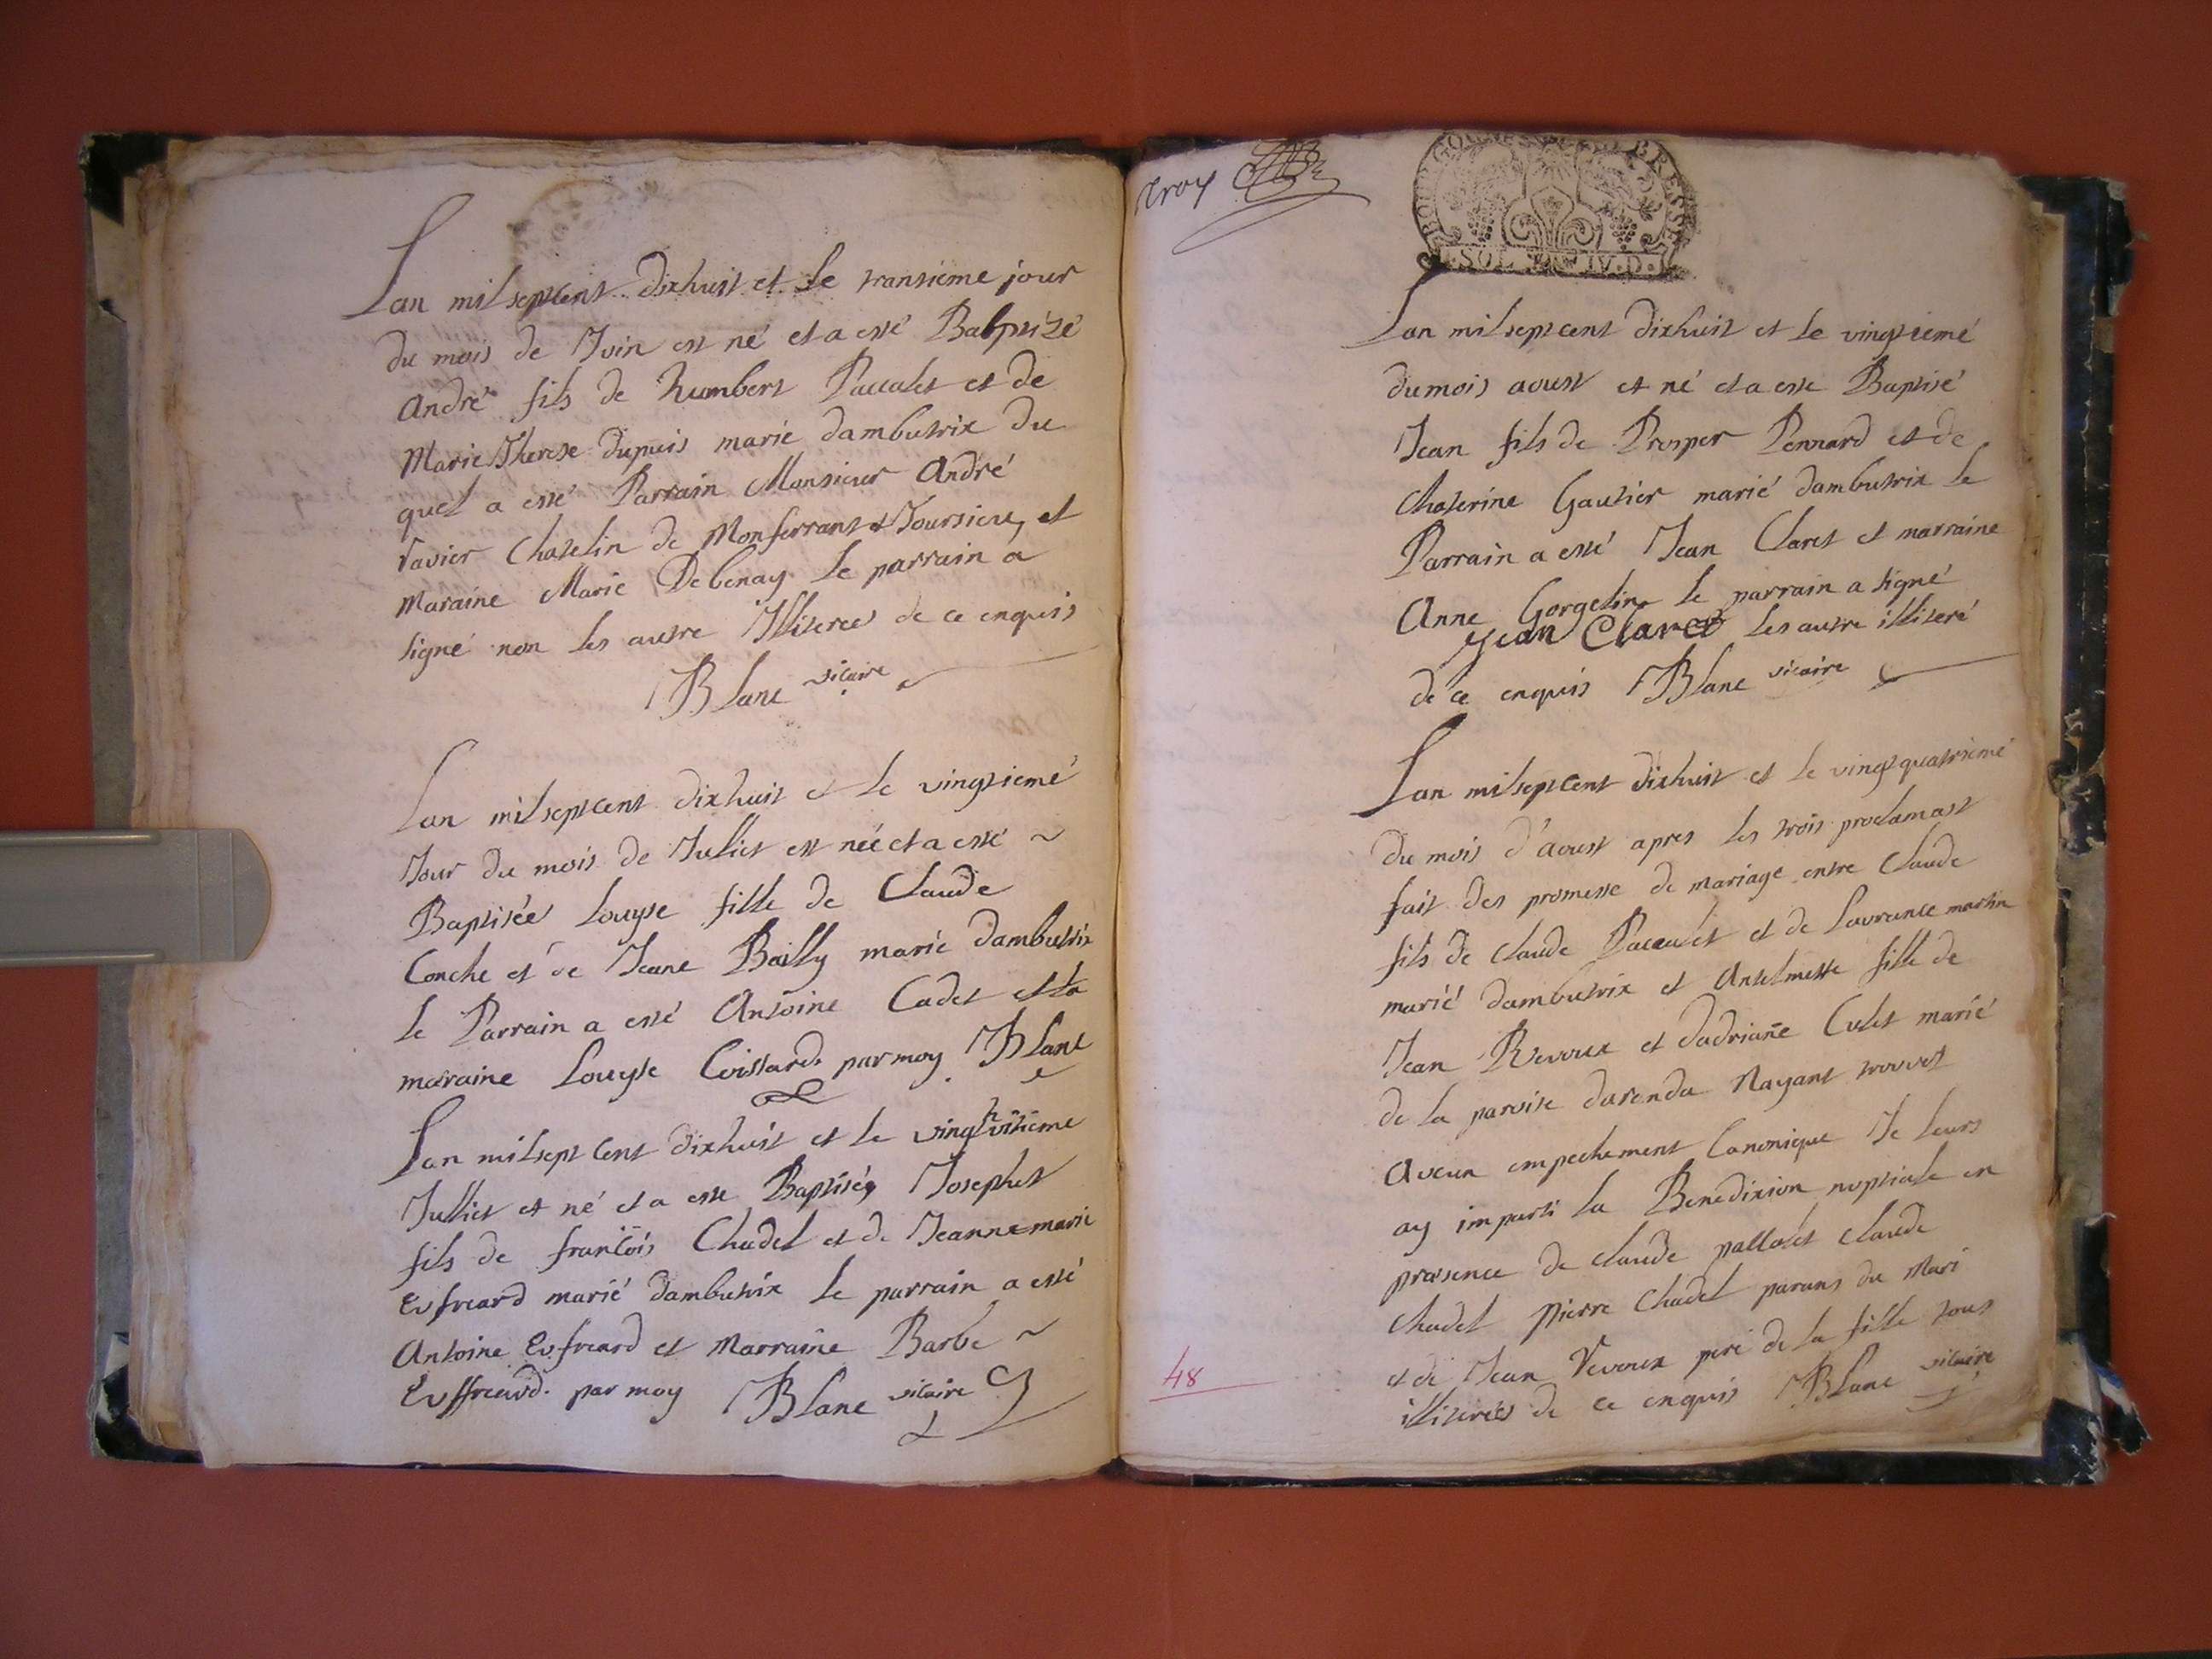 Lan mil septcent dixhuit et le trantieme jour
du mois de Juin est né et a esté Babptizé
André fils de Humbert Paccalet et de
Marie Therese Dupuis marié dambutrix du
quel a esté Parrain Monsieur André
Tavier Chatelin de Monferrant et Toursieu, et
Maraine Marie Debenay le parrain a
signé non les autre Illiterees de ce enquis
Blanc vicaire
Lan mil septcent dixhuit et le vingtiemé
Jour du mois de Julliet est née et a esté ~
Baptisée Louyse fille de Claude
Conche et de Jeane Bailly marié dambutrix
le Parrain a esté Antoine Cadet et la
maraine Louyse Coistard. par moy Blanc
Lan mil sept Cent dixhuit et le vingthvitieme
Julliet et né et a esté Baptisé Josepht
fils de francois Chudel et de Jeanne marie
Evfreard marié dambutrix le parrain a esté
Antoine Evfreard et Marraine Barbe ~
Evffreard. par moy Blanc vicaire
troy
BOURGOGNE BRESSE
SOL IV.D.
Lan mil septcent dixhuit et le vingtiemé
du mois aoust et né et a esté Baptisé
Jean fils de Prosper Pennard et de
Chaterine Gautier marié dambutrix le
Parrain a esté Jean Claret et marraine
Anne Gorgelin le parrain a signé
Jean Claret les autre illiteré
de ce enquis Blanc vicaire
Lan mil septcent dixhuit et le vingtquatriemé
du mois d'aoust apres les trois proclamast
fait des promesse de mariage entre Claude
fils de Claude Paccalet et de Laurance martin
marié dambutrix et Antelmette fille de
Jean Revoux et dadriane Culet marié
de la paroise daranda Nayant trouvet
aucun empechement Canonique Je leurs
ay imparti la Benedixion nuptiale en
praesence de Claude pallolet Claude
Chudel pierre Chudel parans du Mari
et de Jean Revoux peré de la fille tous
illiterés de ce enquis Blanc vicaire
48